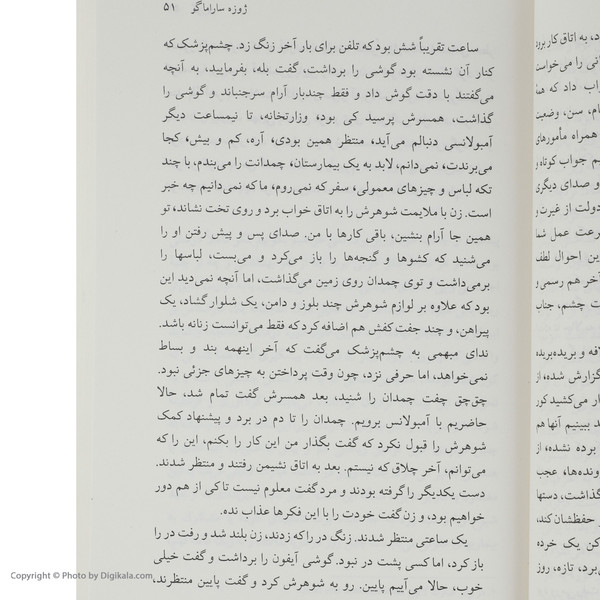 ژوزه ساراماگو ۵۱
ساعت تقریباً شش بود که تلفن برای بار آخر زنگ زد. چشم‌پزشک که
کنار آن نشسته بود گوشی را برداشت، گفت بله، بفرمایید، به آنچه
می‌گفتند با دقت گوش داد و فقط چندبار آرام سرجنباند و گوشی را
گذاشت، همسرش پرسید کی بود، وزارتخانه، تا نیمساعت دیگر
آمبولانسی دنبالم می‌آید، منتظر همین بودی، آره، کم و بیش، کجا
می‌برندت، نمی‌دانم، لابد به یک بیمارستان، چمدانت را می‌بندم، با چند
تکه لباس و چیزهای معمولی، سفر که نمی‌روم، ما که نمی‌دانیم چه خبر
است. زن با ملایمت شوهرش را به اتاق خواب برد و روی تخت نشاند، تو
همین جا آرام بنشین، باقی کارها با من. صدای پس و پیش رفتن او را
می‌شنید که کشوها و گنجه‌ها را باز می‌کرد و می‌بست، لباسها را
برمی‌داشت و توی چمدان روی زمین می‌گذاشت، اما آنچه نمی‌دید این
بود که علاوه بر لوازم شوهرش چند بلوز و دامن، یک شلوار گشاد، یک
پیراهن، و چند جفت کفش هم اضافه کرد که فقط می‌توانست زنانه باشد.
ندای مبهمی به چشم‌پزشک می‌گفت که آخر اینهمه بند و بساط
نمی‌خواهد، اما حرفی نزد، چون وقت پرداختن به چیزهای جزئی نبود.
چق‌چق چفت چمدان را شنید، بعد همسرش گفت تمام شد، حالا
حاضریم با آمبولانس برویم. چمدان را تا دم در برد و پیشنهاد کمک
شوهرش را قبول نکرد که گفت بگذار من این کار را بکنم، این را که
می‌توانم، آخر چلاق که نیستم. بعد به اتاق نشیمن رفتند و منتظر شدند.
دست یکدیگر را گرفته بودند و مرد گفت معلوم نیست تا کی از هم دور
خواهیم بود، و زن گفت خودت را با این فکرها عذاب نده.
یک ساعتی منتظر شدند. زنگ در را که زدند، زن بلند شد و رفت در را
باز کرد، اما کسی پشت در نبود. گوشی آیفون را برداشت و گفت خیلی
خوب، حالا می‌آییم پایین. رو به شوهرش کرد و گفت پایین منتظرند،
د، به اتاق کار برود
نی را می‌خواست
اب داد که هنگ
ام، سن، وضعیت
همراه مأمورهای
م جواب کوتاه و
و صدای دیگری
دولت از غیرت و
رعت عمل شما
ین احوال لطف
آخر هم رسمی و
ت چشم، جناب
لافه و بریده‌بریده
گزارش شده، از
ار می‌کشید کور
د ببینیم آنها هم
برده نشده، از
ونده‌ها، عجب
گذاشت، دستها
حفظشان کند،
کن یک خرده
ی‌برد، تازه، روز
Copyright © Photo by Digikala.com